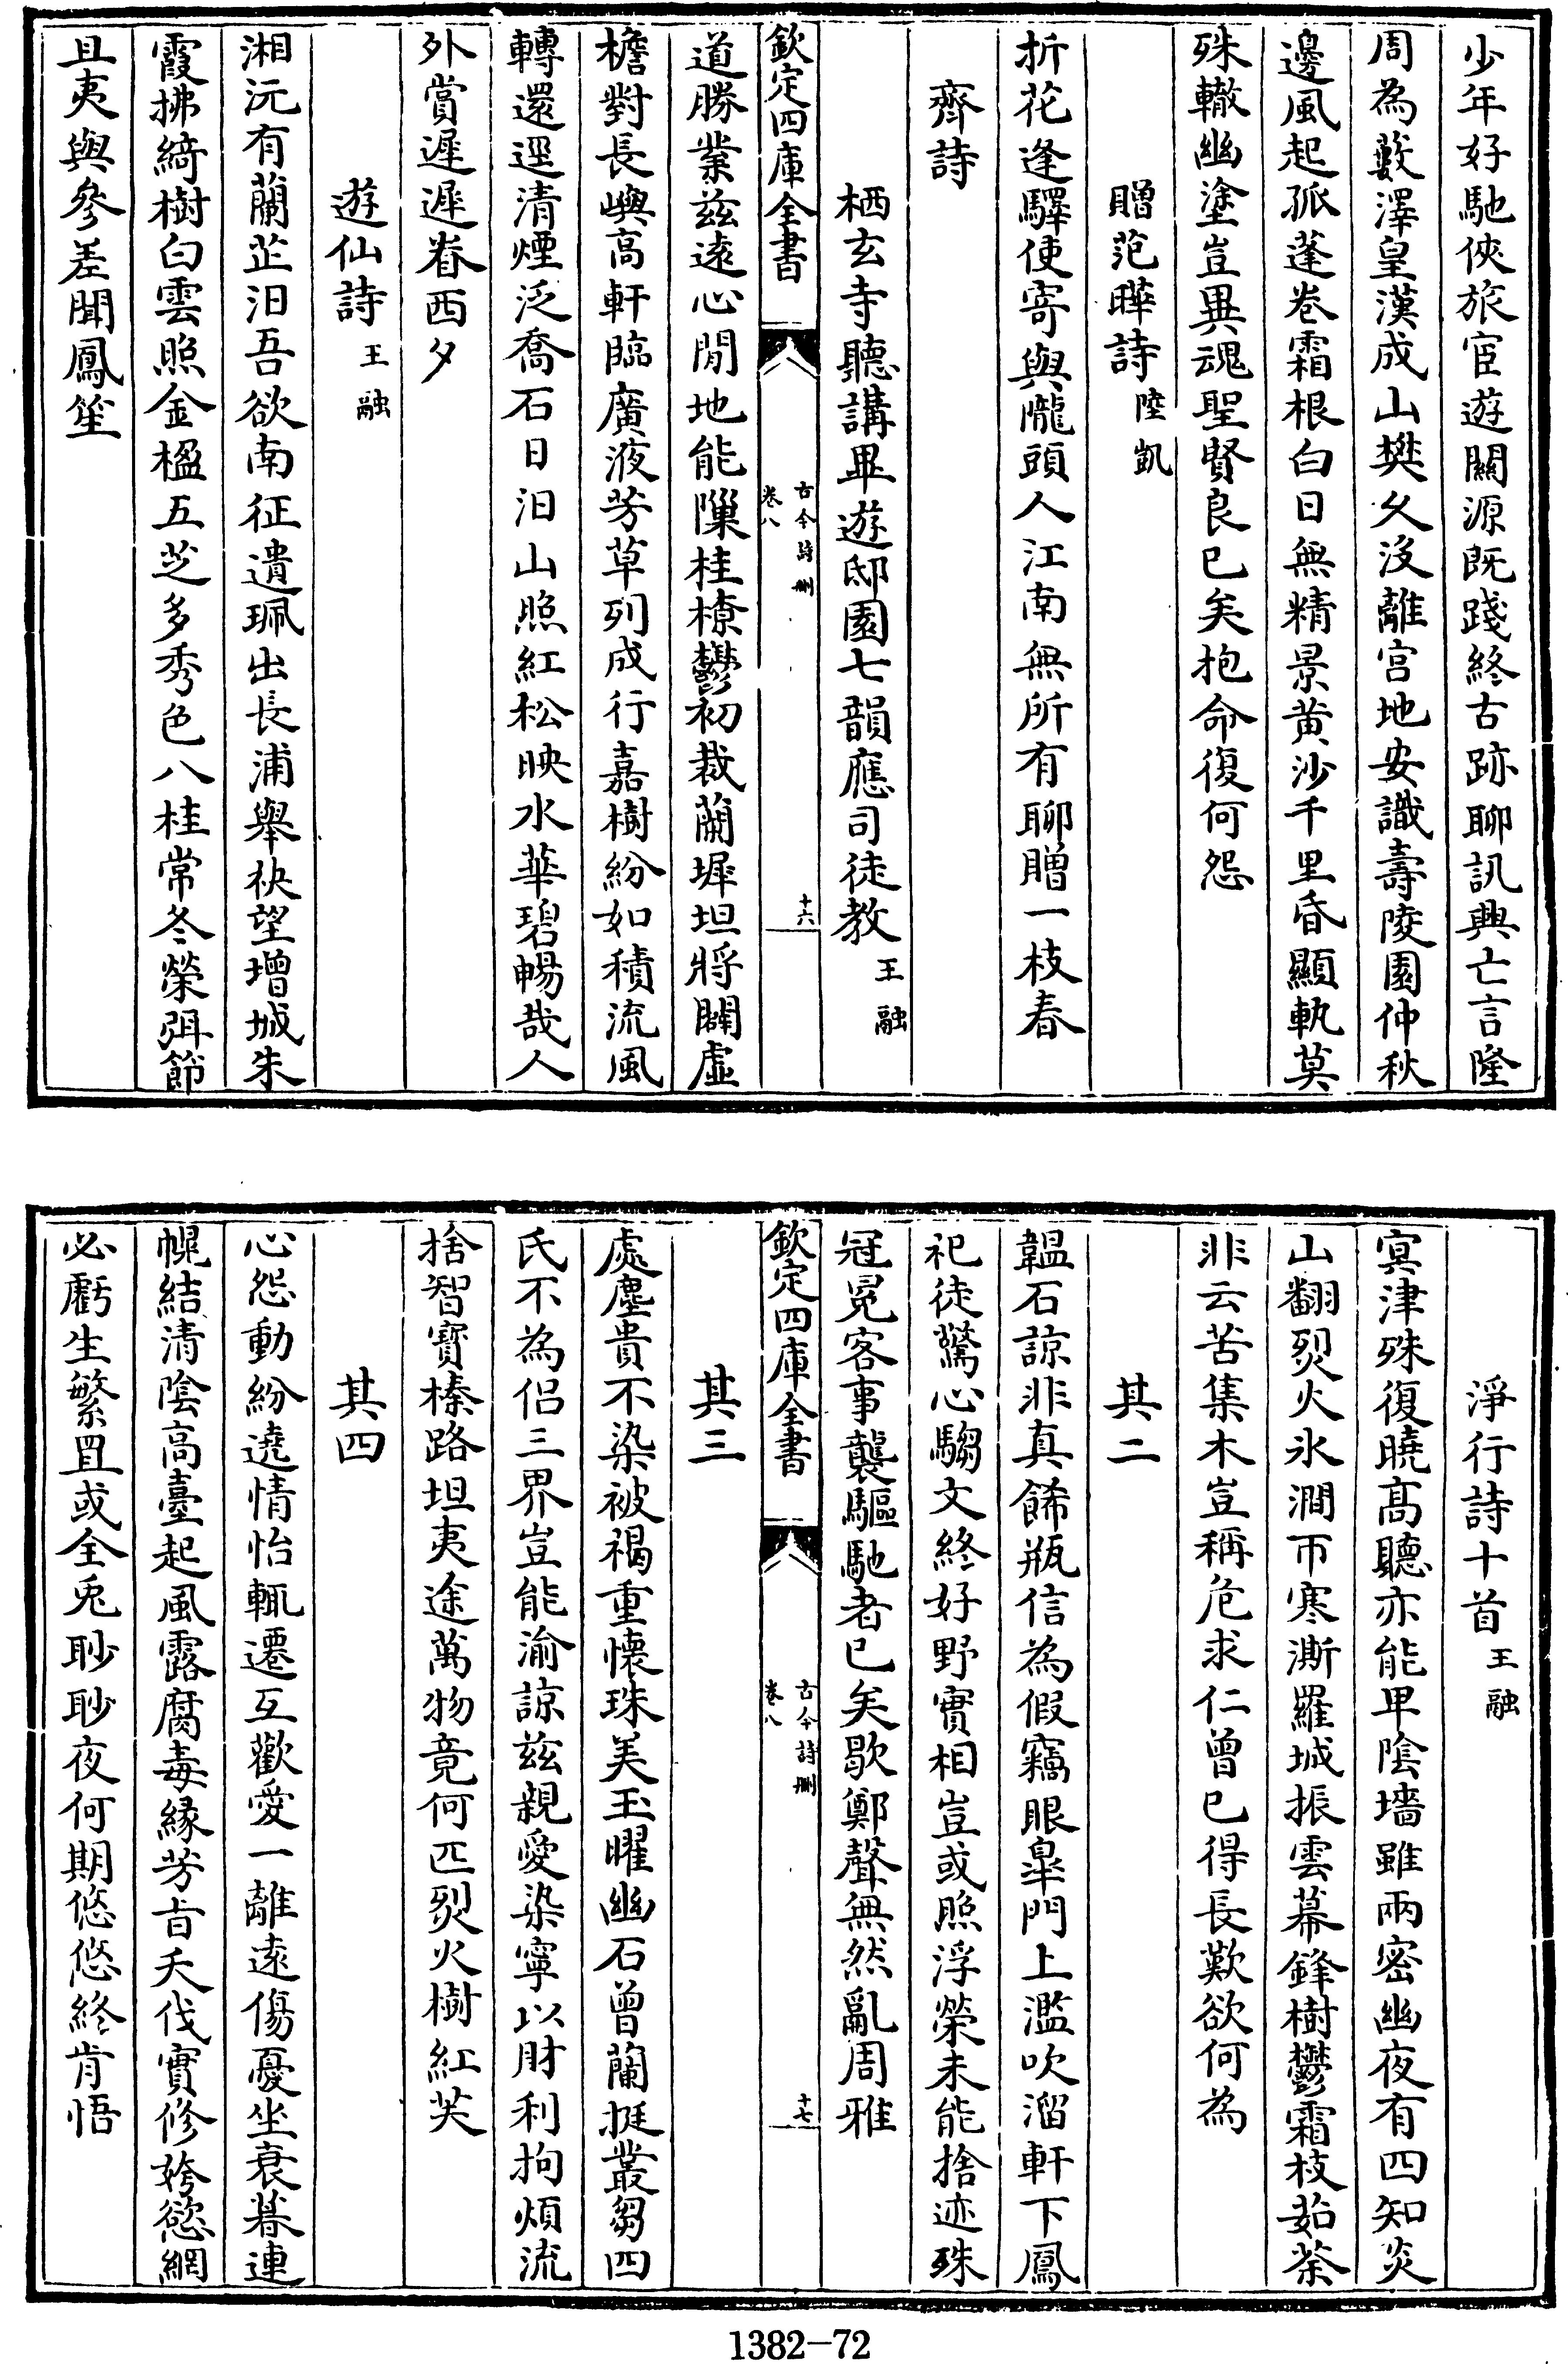 少年好馳俠旅宦遊關源既踐終古跡聊訊興亡言隆
周為藪澤皇漢成山樊久沒離宫地安識壽陵園仲秋
邊風起孤蓬卷霜根白日無精景黄沙千里昏顯軌莫
殊轍幽塗豈異魂聖賢良已矣抱命復何怨
贈范曄詩陸凱
折花逢驛使寄與隴頭人江南無所有聊贈一枝春
齊詩
栖玄寺聽講畢遊邸園七韻應司徒教王融
道勝業兹逺心閒地能隟桂橑鬱初裁蘭墀坦將闢虚
欽定四庫全書
古今詩刪
卷八
十六
檐對長嶼高軒臨廣液芳草列成行嘉樹紛如積流風
轉還逕清煙泛喬石日汨山照紅松映水華碧暢哉人
外賞遲遲眷西夕
遊仙詩王融
湘沅有蘭芷汨吾欲南征遺珮出長浦舉袂望增城朱
霞拂綺樹白雲照金楹五芝多秀色八桂常冬榮弭節
且夷與參差聞鳳笙
淨行詩十首王融
冥津殊復曉高聽亦能卑陰墻雖兩密幽夜有四知炎
山翻烈火氷澗帀寒澌羅城振雲幕鋒樹鬱霜枝茹荼
非云苦集木豈稱危求仁曾已得長歎欲何為
其二
韞石諒非真餙瓶信為假竊眼臯門上濫吹溜軒下鳳
祀徒驚心騶文終好野實相豈或照浮榮未能捨迹殊
冠冕客事襲驅馳者已矣歇鄭聲無然亂周雅
欽定四庫全書
古今詩刪
卷八
十七
其三
處塵貴不染被褐重懷珠美玉曜幽石曾蘭挺叢蒭四
氏不為侣三界豈能渝諒兹親愛染寧以財利拘煩流
捨智寳榛路坦夷途萬物竟何匹烈火樹紅芙
其四
心怨動紛遶情怡輒遷互歡愛一離逺傷憂坐衰暮連
幌結清陰高臺起風露腐毒縁芳㫖夭伐實修姱慾網
必虧生繁罝或全兎眇眇夜何期悠悠終肯悟
1382-72